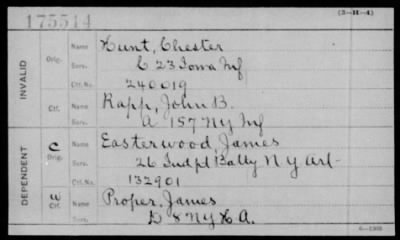 175514
(3-H-4)
INVALID
Orig. Name Hunt, Chester
Serv. C 23 Iowa Inf
Ctf. No. 240019
Ctf. Name Rapp, John B.
Serv. A 157 NY Inf
DEPENDENT
C Orig. Name Easterwood, James
Serv. 26 Indpt Batty N Y Art-
Ctf. No. 132901
W Ctf. Name Proper, James
Serv. D 8 NY H A.